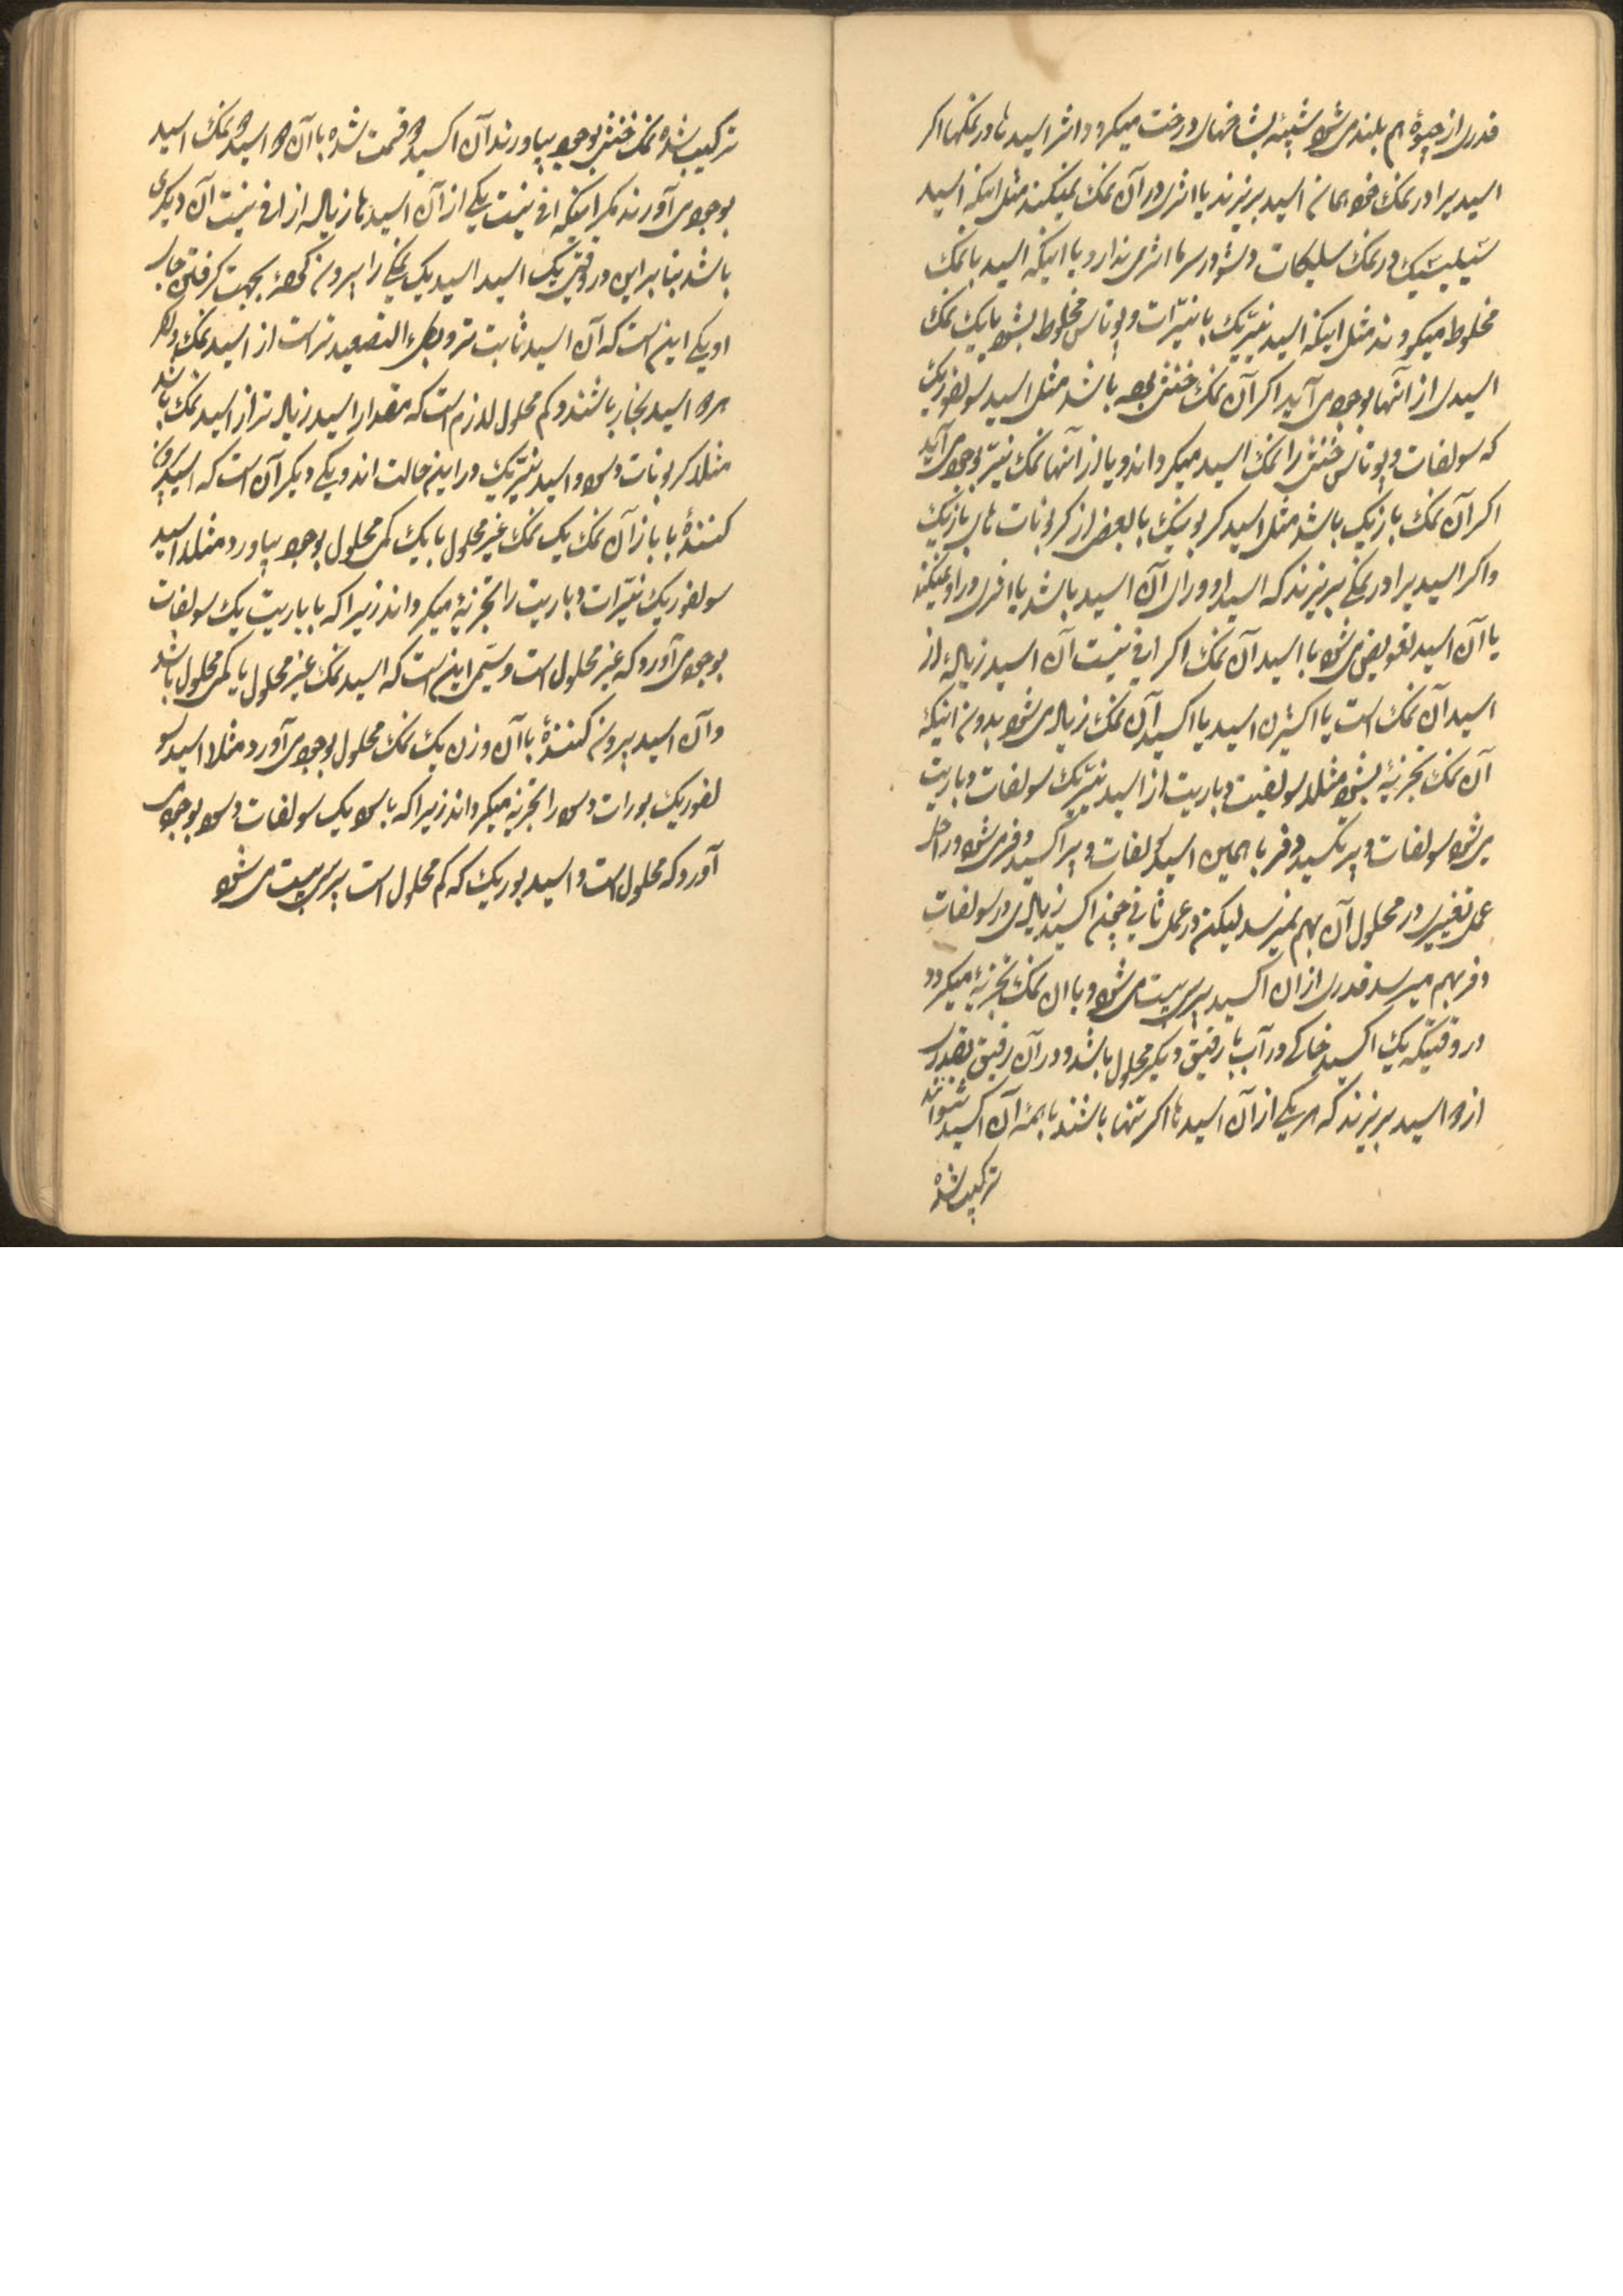 قدری از جیوهٔ هم بلند می شود شبیه بشاخهای درخت میکردد اثر اسید ها در نمکها اکر
اسید یرا در نمک خود همان اسید بریزند یا اثری در آن نمک نمیکند مثل اینکه اسید
سیلیسیک در نمک سلیکات دسود در سرما اثری ندارد یا اینکه اسید با نمک
مخلوط میکردند مثل اینکه اسید نیتریک با نیترات دپوتاس مخلوط بشود یا یک نمک
اسیدی از آنها بوجود می آید اکر آن نمک خنثی بوده باشد مثل اسید سولفوریک
که سولفات دپوتاس خنثی را نمک اسید میکرداند و یا از آنها نمک نیتر بوجود می آید
اکر آن نمک بازیک باشد مثل اسید کربونیک با بعضی از کربونات های بازیک
و اکر اسید یرا در نمکی بریزند که اسید او ورای آن اسید باشد یا اثری در او نمیکند
یا آن اسید تفویض می شود با اسید آن نمک اکر افی نیت آن اسید زیاده از
اسید آن نمک است یا اکسیژن اسید یا اکسید آن نمک زیاد می شود بدون اینکه
آن نمک تجزیهٔ بشود مثلا سولفیت دباریت از اسید نیتریک سولفات دباریت
می شود سولفات دپرتکسید دفر با همین اسید سولفات دپراکسید دفر می شود در اول
عمل تغییری در محلول آن بهم نمیرسد لیکن در عمل ثانی چون اکسید زیادی در سولفات
دفر بهم میرسد قدری از ان اکسید پرسیپیت می شود و با ان نمک تجزیهٔ میکردد
در وقتیکه یک اکسید خاکی در آب یا رقیق دیکر محلول باشد و در آن رقیق بقدری
از دو اسید بریزند که هر یکی از آن اسید ها اکر تنها باشند با همهٔ آن اکسید میتوانند
ترکیب شده
ترکیب شده نمک خنثی بوجود بیاورند آن اکسید دو قسمت شده با آن دو اسید دو نمک اسید
بوجود می آورند مکر اینکه افی نیت یکی از آن اسید ها زیاده از افی نیت آن دیکری
باشد بنا بر این در وقتی یک اسید اسید یک نمکی را بیرون کند بجهت کرفتن جای
او یکی این است که آن اسید ثابت تر و بطیء التصعید تر است از اسید نمک و اکر
هر دو اسید بخار باشند و کم محلول لازم است که مقدار اسید زیاد تر از اسید نمک باشد
مثلا کربونات دسود و اسید نیتریک در این حالت اند و یکی دیکر آن است که اسید بیرون
کنندهٔ با باز آن نمک یک نمک غیر محلول یا یک کمی محلول بوجود بیاورد مثلا اسید
سولفوریک نیترات دباریت را تجزیهٔ میکرداند زیرا که با باریت یک سولفات
بوجود می آورد که غیر محلول است و سیمی این است که اسید نمک غیر محلول یا کمی محلول باشد
و آن اسید بیرون کنندهٔ با آن وزن یک نمک محلول بوجود می آورد مثلا اسید سو
لفوریک بورات دسود را تجزیه میکرداند زیرا که با سود یک سولفات دسود بوجود می
آورد که محلول است و اسید بوریک که کم محلول است پرسیپیت می شود